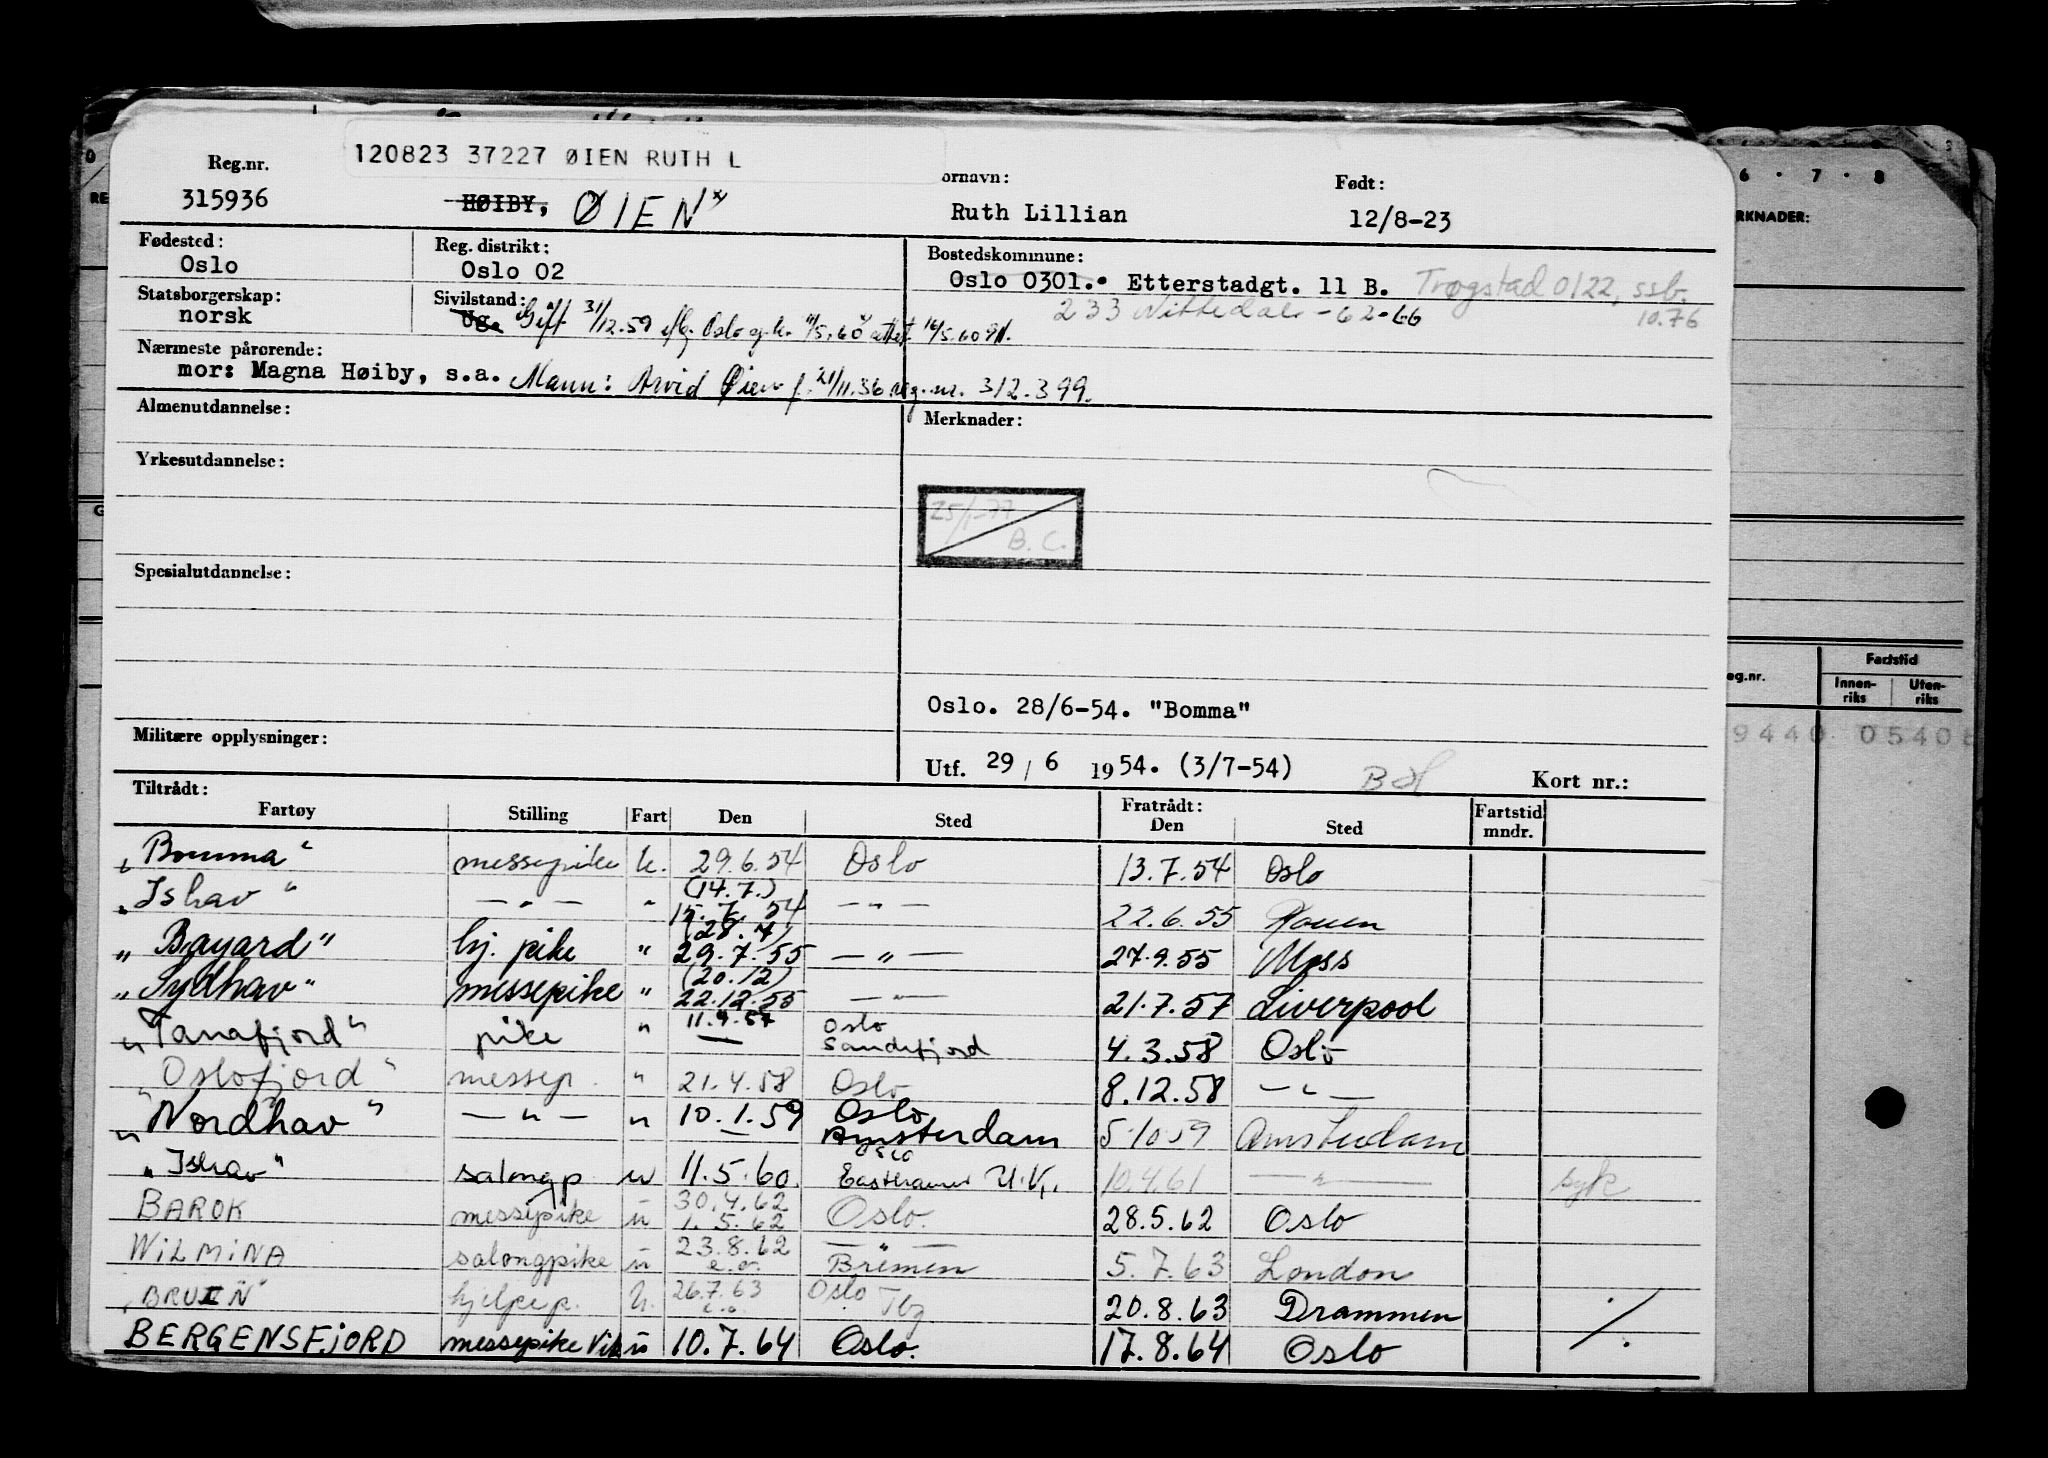 120823 37227 ØIEN RUTH L
Reg.nr. ornavn: Født:
315936 HØIBY, ØIEN Ruth Lillian 12/8-23
Fødested: Reg. distrikt: Bostedskommune:
Oslo Oslo 02 Oslo 0301. Etterstadgt. 11 B. Trøgstad 0122, ssb. 10.76
Statsborgerskap: Sivilstand: 233 Nittedal - 62-66
norsk Ug. Gift 31/12.59
Nærmeste pårørende:
mor: Magna Høiby, s.a. Mann: Arvid Øien f. 21/11.36 reg. nr. 312.399.
Almenutdannelse: Merknader:
Yrkesutdannelse:
25/1-77
B. C.
Spesialutdannelse:
Oslo. 28/6-54. "Bomma"
Militære opplysninger:
Utf. 29 / 6 1954. (3/7-54) Kort nr.:
Tiltrådt: Fratrådt:
Fartøy Stilling Fart Den Sted Den Sted Fartstid mndr.
"Bomma" messepike u. 29.6.54 Oslo 13.7.54 Oslo
"Ishav" — " — " (14.7.) 15.7.54 — " — 22.6.55 Rouen
"Bayard" hj. pike " (28.7) 29.7.55 — " — 27.9.55 Moss
"Sydhav" messepike " (20.12) 22.12.55 — " — 21.7.57 Liverpool
"Tanafjord" pike " 11.9.57 Oslo Sandefjord 4.3.58 Oslo
"Oslofjord" messep. " 21.4.58 Oslo 8.12.58 — " —
"Nordhav" — " — " 10.1.59 Oslo Amsterdam 5.10.59 Amsterdam
"Ishav" salongp u 11.5.60. Oslo 10.4.61 — " — syk
BAROK messepike u 30.4.62 1.5.62 Oslo. 28.5.62 Oslo
WILMINA salongpike u 23.8.62 e.o. — " — Bremen 5.7.63 London
"BRUIN" hjelpep. u. 26.7.63 Oslo Tbg 20.8.63 Drammen
BERGENSFJORD messepike Vik u 10.7.64 Oslo. 17.8.64 Oslo
6 · 7 · 8
RKNADER:
eg.nr. Fartstid
Innen-riks Uten-riks
9440 0540